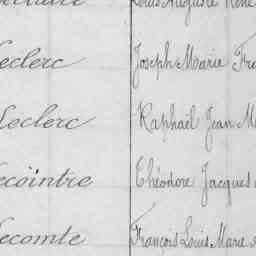 Louis Auguste René
eclerc Joseph Marie Fra
Leclerc Raphaël Jean M
ecöintre Théodore Jacques
ecomte François Louis Marie